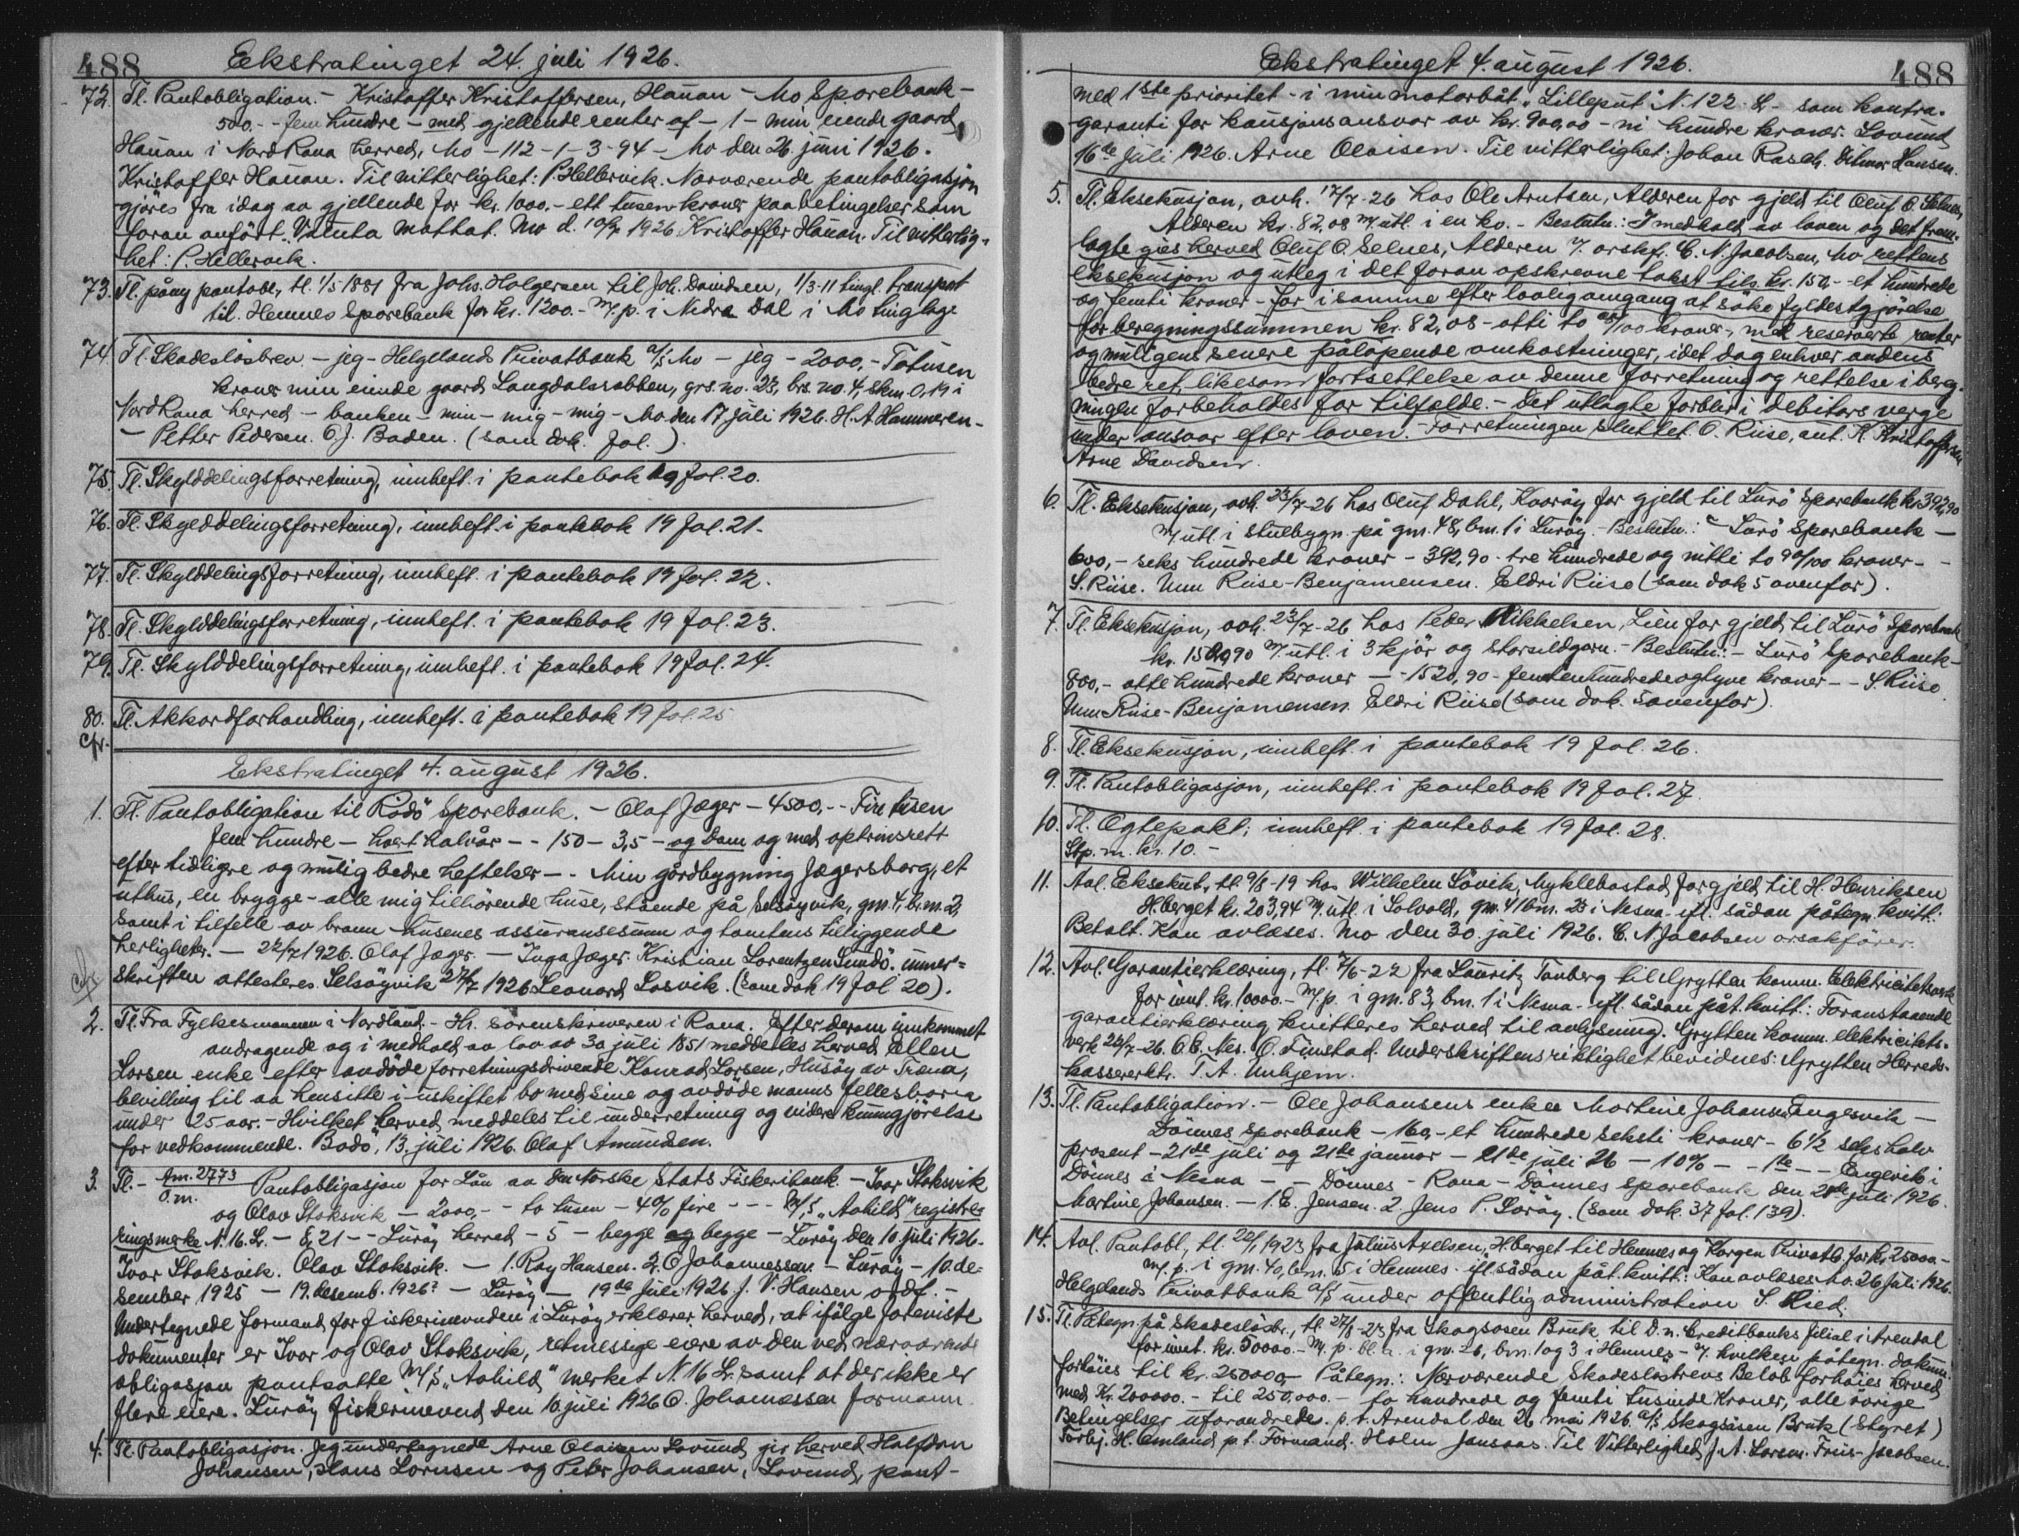 488
Ekstratinget 24. juli 1926.
72. Tl. Pantobligation. - Kristoffer Kristoffersen, Hauan - Mo Sparebank -
500.- - fem hundre - med gjellende renter af - 1 - min eiende gaard
Hauan i Nord Rana herred, Mo - 112 - 1 - 3-94 - Mo den 26. juni 1926.
Kristoffer Hauan. Til vitterlighet: P. Hellervik. Nærværende pantobligasjon
gjøres fra idag av gjellende for kr. 1000.- ett tusen kroner paa betingelser som
foran anført. Valuta mottat. Mo d. 10/7 1926 Kristoffer Hauan. Til vitterlig-
het: P. Hellervik.
73. Tl. påny pantobl., tl. 1/5 1881 fra Johs. Holgersen til Joh. Davidsen, 1/3-11 tingl. transport
til Hemnes Sparebank for kr. 1200.- m. p. i Nedra Dal i Mo tinglag
74. Tl. Skadesløsbrev - jeg - Helgelands Privatbank a/s Mo - jeg - 2000,- Totusen
kroner min eiende gaard Langdalsrabben, grs. no. 23, brs. no. 4, skm 0,19 i
Nord Rana herred - banken - min - mig - mig - Mo den 17 juli 1926. H. A. Hammeren -
- Petter Pedersen. O. J. Baden. (som dok. fol. )
75. Tl. Skylddelingsforretning, innheft. i pantebok 19 fol. 20.
76. Tl. Skylddelingsforretning, innheft. i pantebok 19 fol. 21.
77. Tl. Skylddelingsforretning, innheft. i pantebok 19 fol. 22.
78. Tl. Skylddelingsforretning, innheft. i pantebok 19 fol. 23.
79. Tl. Skylddelingsforretning, innheft. i pantebok 19 fol. 24.
80. Tl. Akkordforhandling, innheft. i pantebok 19 fol. 25
cfr.
Ekstratinget 4. august 1926.
1. Tl. Pantobligation til Rödö Sparebank. - Olaf Jæger - 4500,- - Fire tusen
fem hundre - hvert halvår - - 150 - 3,5 - og Dam og med optrinsrett
efter tidligre og mulig bedre heftelser - . Min gårdbygning Jægersborg, et
uthus, en brygge - alle mig tilhørende huse, stående på Selsøyvik, gm. 4, br. m. 2,
samt i tilfelle av brann husenes assuransesum og tomtens tilliggende
herligheter. - 22/7 1926. Olaf Jæger. - Inga Jæger. Kristian Lorentzen Sundö. Unner-
skriften attesteres Selsøyvik 27/7 1926 Leonard Losvik. (som dok 19 fol 20).
2. Tl. Fra Fylkesmannen i Nordland. - Hr. sorenskriveren i Rana. Efter derom innkommet
andragende og i medhold av lov av 30 juli 1851 meddeles herved Ellen
Larsen enke efter avdöde forretningsdrivende Konrad Larsen, Husöy av Træna,
bevilling til aa hensitte i uskiftet bo med sine og avdöde manns felles barn
under 25 aar. - Hvilket herved meddeles til underretning og videre kunngjørelse
for vedkommende. Bodö, 13. juli 1926. Olaf Amundsen.
3. Tl. - Am. 2773 Pantobligasjon for Lån av den Norske Stats Fiskeribank - Ivar Stoksvik
O. m.
og Olav Stoksvik - 2000,- - to tusen - 4% fire - - - M/s "Aahild" registre-
ringsmerke N. 16. L. - 8,21 - - Luröy herred - 5 - begge og begge - Luröy den 10 juli 1926.
Ivar Stoksvik. Olav Stoksvik. - 1. Roy Hansen. 2. O Johannessen - Luröy - 10. de-
sember 1925 - 19. desemb. 1926? - Luröy - 19de juli 1926 J. V. Hansen o. df. -
Undertegnede formand for fiskerinevnden i Luröy erklærer herved, at ifølge foreviste
dokumenter er Ivar og Olav Stoksvik, retmessige eiere av den ved nærværende
obligasjon pantsatte M/s "Aahild" merket N. 16 L. samt at der ikke er
flere eiere. Luröy fiskerinevnd den 10 juli 1926 O. Johannessen formann.
4. Tl. Pantobligasjon. Jeg undertegnede Arne Olaisen Lovund gir herved Halfdan
Johansen, Hans Lorntsen og Peter Johansen, Lovund, pant-
Ekstratinget 4. august 1926.
488
med 1ste prioritet - i min motorbåt "Lilleput" N. 122. L - som kontra-
garanti for kausjonsansvar av kr. 900,00 - ni hundre kroner. Lovund
16de juli 1926. Arne Olaisen. Til vitterlighet: Johan Rasch. Hilmar Hansen.
5. Tl. Eksekusjon, avh. 17/7-26 hos Ole Arntsen, Alderen for gjeld til Oluf O. Selnes,
Alderen kr. 82,08 m/utl. i en ko. - Beslutn.: I medhold av loven og det frem-
lagte gis herved Oluf O. Selnes, Alderen v. orskf. C. N. Jacobsen, Mo rettens
eksekusjon og utleg i det foran opskrevne takst tils. kr. 150,- et hundrede
og femti kroner - for i samme efter lovlig omgang at søke fyldestgjørelse
for beregningssummen kr. 82,08 - otti to 08/100 kroner -, med reserverte renter
og muligens senere påløpende omkostninger, idet dog enhver andens
bedre ret, likesom fortsettelse av denne forretning og rettelse i bereg-
ningen forbeholdes for tilfælde. - Det utlagte forblir i debitors verge
under ansvar efter loven. Forretningen sluttet. O. Riise, aut. K Kristoffersen
Arne Davidsen.
6. Tl. Eksekusjon, avh. 23/7-26 hos Oluf Dahl, Kvaröy for gjeld til Lurö Sparebank kr. 392,90
m/utl. i stuebygn. på gm. 48, bm. 1 i Luröy. - Beslutn.: - Lurö Sparebank -
600,- seks hundrede kroner - 392,90 - tre hundrede og nitti to 90/100 kroner - -
S. Riise. Unn Riise-Benjaminsen. Eldri Riise (som dok 5 ovenfor).
7. Tl. Eksekusjon, avh. 23/7-26 hos Peder Mikkelsen, Lien for gjeld til Lurö Sparebank
kr. 1520,90 m/utl. i 3 kjør og storsildgarn. - Beslutn.: - Lurö Sparebank -
800,- otte hundrede kroner - - 1520,90 - femtenhundredeogtyve kroner - - S. Riise
Unn Riise-Benjaminsen. Eldri Riise (som dok. 5 ovenfor).
8. Tl. Eksekusjon, innheft. i pantebok 19 fol. 26.
9. Tl. Pantobligasjon, innheft. i pantebok 19 fol. 27.
10. Tl. Egtepakt; innheft. i pantebok 19 fol. 28.
Stp. m. kr. 10. -
11. Avl. Eksekut., tl. 9/8-19 hos Wilhelm Lövik, Myklebostad for gjeld til H. Henriksen
H.berget kr. 203,94 m/utl. i Solvold, gm. 41 bm. 23 i Nesna - ifl. sådan påtegn. kvitt.:
Betalt. Kan avlæses. Mo den 30. juli 1926. C. N. Jacobsen orsakfører.
12. Avl. Garantierklæring, tl. 7/6-22 fra Lauritz Tovberg til Grytten komm. Elektricitetsverk
for innt. kr. 10000.- m. p. i gm. 83, bm. 1 i Nesna - ifl. sådan påt. kvitt.: Foranstaaende
garantierklæring kvitteres herved til avlysning. Grytten komm. elektricitets-
verk 22/7-26. O. B. Nes. O. Finstad. Underskriftens riktighet bevidnes: Grytten Herreds-
kassererktr. T. A. Unhjem.
13. Tl. Pantobligation. - Ole Johansens enke Martine Johansen Engesvik -
Dönnes Sparebank - 160,- et hundrede seksti kroner - 6 1/2 seks halv
prosent - 21de juli og 21de januar - 21de juli 26 - 10% - - 1ste - - Engevik i
Dönnes i Nesna - - Dönnes - Rana - Dönnes Sparebank den 21de juli 1926.
Martine Johansen. - 1. E. Jensen. 2. Jens P. Söröy. (som dok. 37 fol. 139).
14. Avl. Pantobl., tl. 22/1 1923 fra Julius Axelsen, H.berget til Hemnes og Korgen Privatb. for kr. 25000.-
m. p. i gm. 40, bm. 5 i Hemnes - ifl. sådan påt. kvitt.: Kan avlæses Mo. 26 juli 1926.
Helgelands Privatbank a/s under offentlig administration S. Ried.
15. Tl. Påtegn. på skadesløsbr., tl. 27/8-23 fra Skogsåsen Bruk til D. n. Creditbanks filial i Arendal
for innt. kr. 50000.- m. p. bl. a. i gm. 26, bm. 1 og 3 i Hemnes - v. hvilken påtegn. dokum.
forhøies til kr. 250000,- Påtegn: Nærværende Skadesløsbrevs Beløb forhøies herved
med Kr. 200000.- til 250,000.- to hundrede og femti tusinde Kroner, alle øvrige
Betingelser uforandrede. p. t. Arendal den 26 mai 1926. a/s Skogsåsen Bruk (Styret)
Torbj. H. Omland p. t. Formand. Holm Jansaas. Til Vitterlighed J. A. Larsen. Friis-Jacobsen.